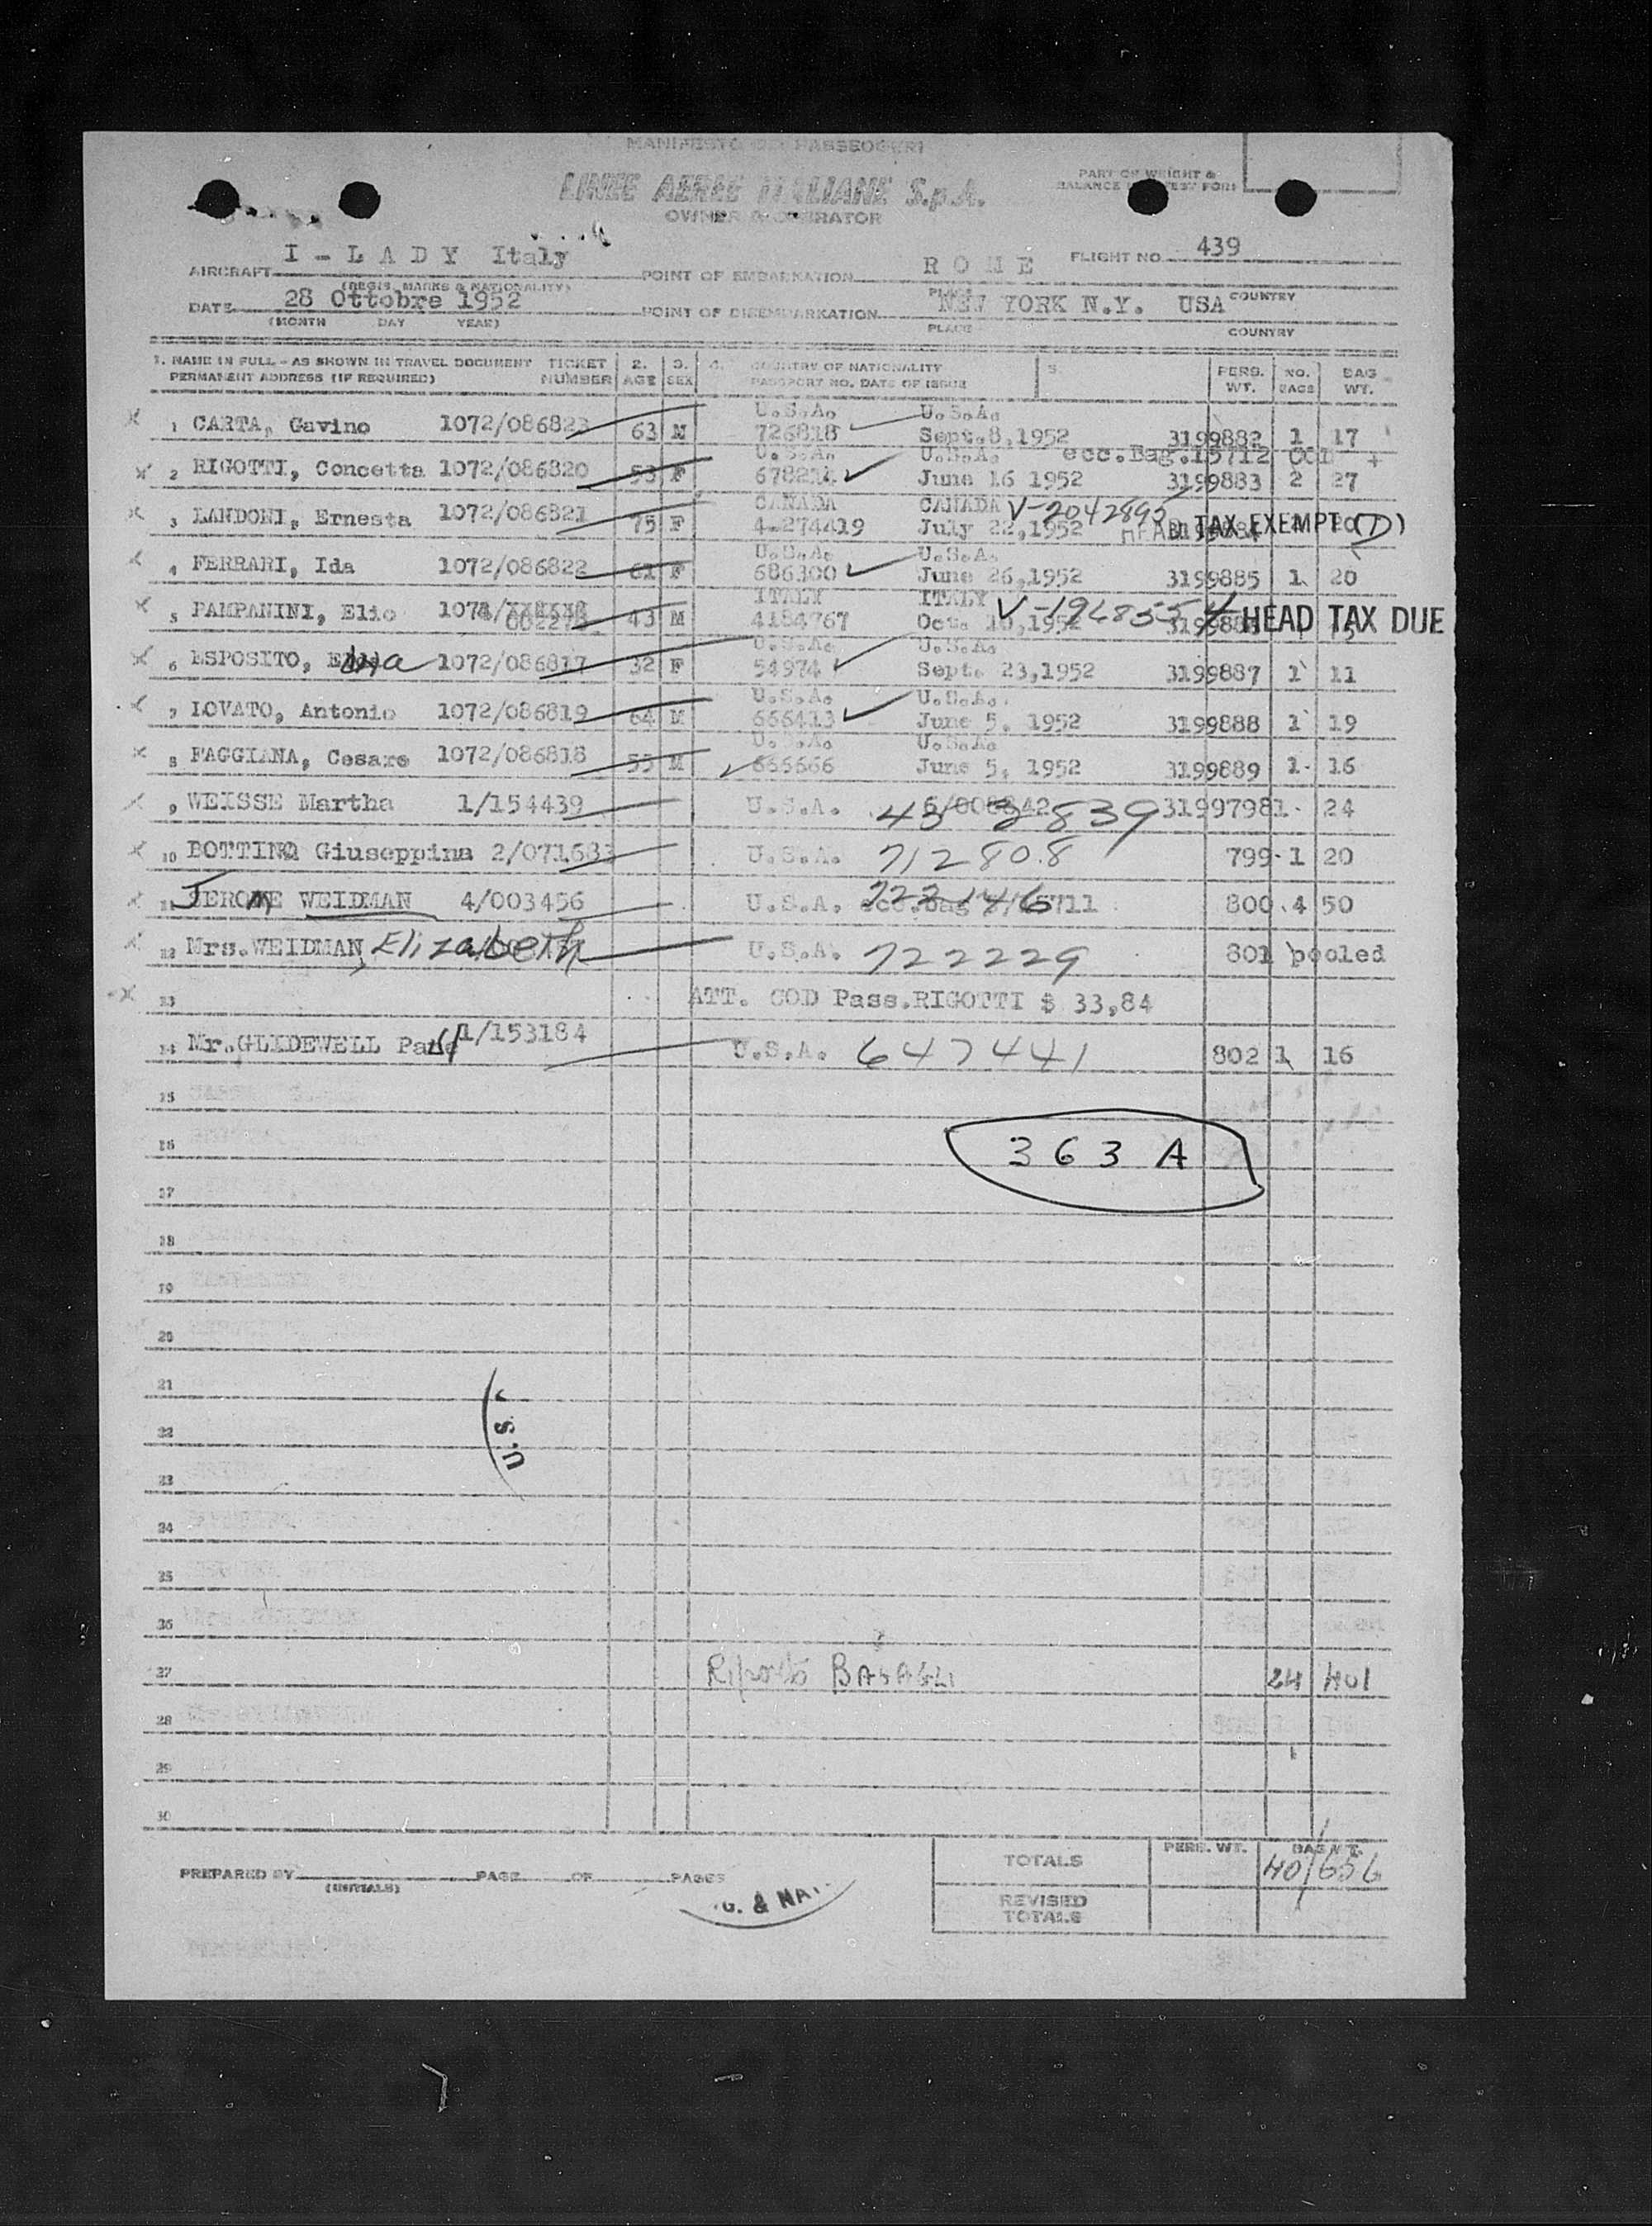 MANIFESTO DEI PASSEGGERI
LINEE AEREE ITALIANE S.p.A.
OWNER OR OPERATOR
PART OF WEIGHT &
BALANCE
AIRCRAFT I - L A D Y Italy
(REGIS. MARKS & NATIONALITY)
POINT OF EMBARKATION R O M E
FLIGHT NO. 439
PLACE COUNTRY
DATE 28 Ottobre 1952
(MONTH DAY YEAR)
POINT OF DISEMBARKATION NEW YORK N.Y. USA
PLACE COUNTRY
1. NAME IN FULL - AS SHOWN IN TRAVEL DOCUMENT TICKET 2. 3. 4. COUNTRY OF NATIONALITY 5. PERS. NO. BAG
PERMANENT ADDRESS (IF REQUIRED) NUMBER AGE SEX PASSPORT NO. DATE OF ISSUE WT. BAGS WT.
U.S.A. U.S.A.
1 CARTA, Gavino 1072/086823 63 M 726818 Sept.8,1952 3199882 1 17
U.S.A. U.S.A. ecc.Bag.15712
2 RIGOTTI, Concetta 1072/086820 53 F June 16 1952 3199883 2 27
CANADA CANADA V-2042895
3 LANDONI, Ernesta 1072/086821 75 F 4-274419 July 22,1952 HEAD TAX EXEMPT (T)
U.S.A. U.S.A.
4 FERRARI, Ida 1072/086822 61 F 686300 June 26,1952 3199885 1 20
ITALY ITALY V-1948554
5 PAMPANINI, Elio 43 M 4184767 HEAD TAX DUE
U.S.A. U.S.A.
6 ESPOSITO, 1072/086817 32 F 54974 Sept. 23,1952 3199887 1 11
U.S.A. U.S.A.
7 LOVATO, Antonio 1072/086819 64 M 666413 June 5. 1952 3199888 1 19
U.S.A. U.S.A.
8 FAGGIANA, Cesare 1072/086818 55 M June 5, 1952 3199889 1 16
9 WEISSE Martha 1/154439 U.S.A. 3199798 1 24
10 BOTTINO Giuseppina 2/071683 U.S.A. 712808 799 1 20
11 JEROME WEIDMAN 4/003456 U.S.A. 722146 800 4 50
12 Mrs.WEIDMAN, Elizabeth U.S.A. 722229 801 pooled
13 ATT. COD Pass.RIGOTTI $ 33,84
14 Mr.GLIDEWELL 1/153184 U.S.A. 647441 802 1 16
15
16 363 A
17
18
19
20
21
22 U.S.
23
24
25
26
27 24 401
28
29
30
PREPARED BY (INITIALS) PAGE OF PAGES
TOTALS PERS. WT. BAG WT.
40/656
REVISED
TOTALS
& NAT